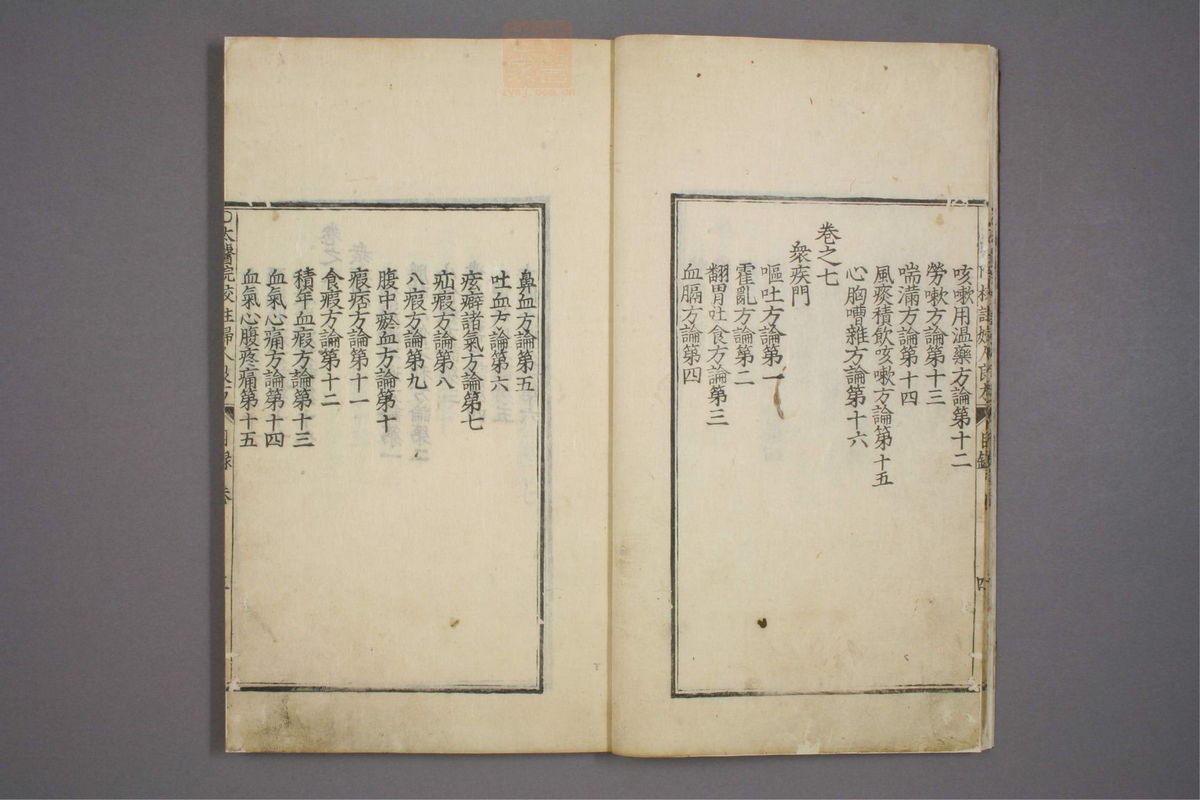 咳嗽用温藥方論第十二
勞嗽方論第十三
喘滿方論第十四
風痰積飲咳嗽方論第十五
心胸嘈雜方論第十六
卷之七
衆疾門
嘔吐方論第一
霍亂方論第二
翻胃吐食方論第三
血膈方論第四
鼻血方論第五
吐血方論第六
痃癖諸氣方論第七
疝瘕方論第八
八瘕方論第九
腹中瘀血方論第十
瘕痞方論第十一
食瘕方論第十二
積年血瘕方論第十三
血氣心痛方論第十四
血氣心腹疼痛第十五
太醫院校註婦人良方
目録